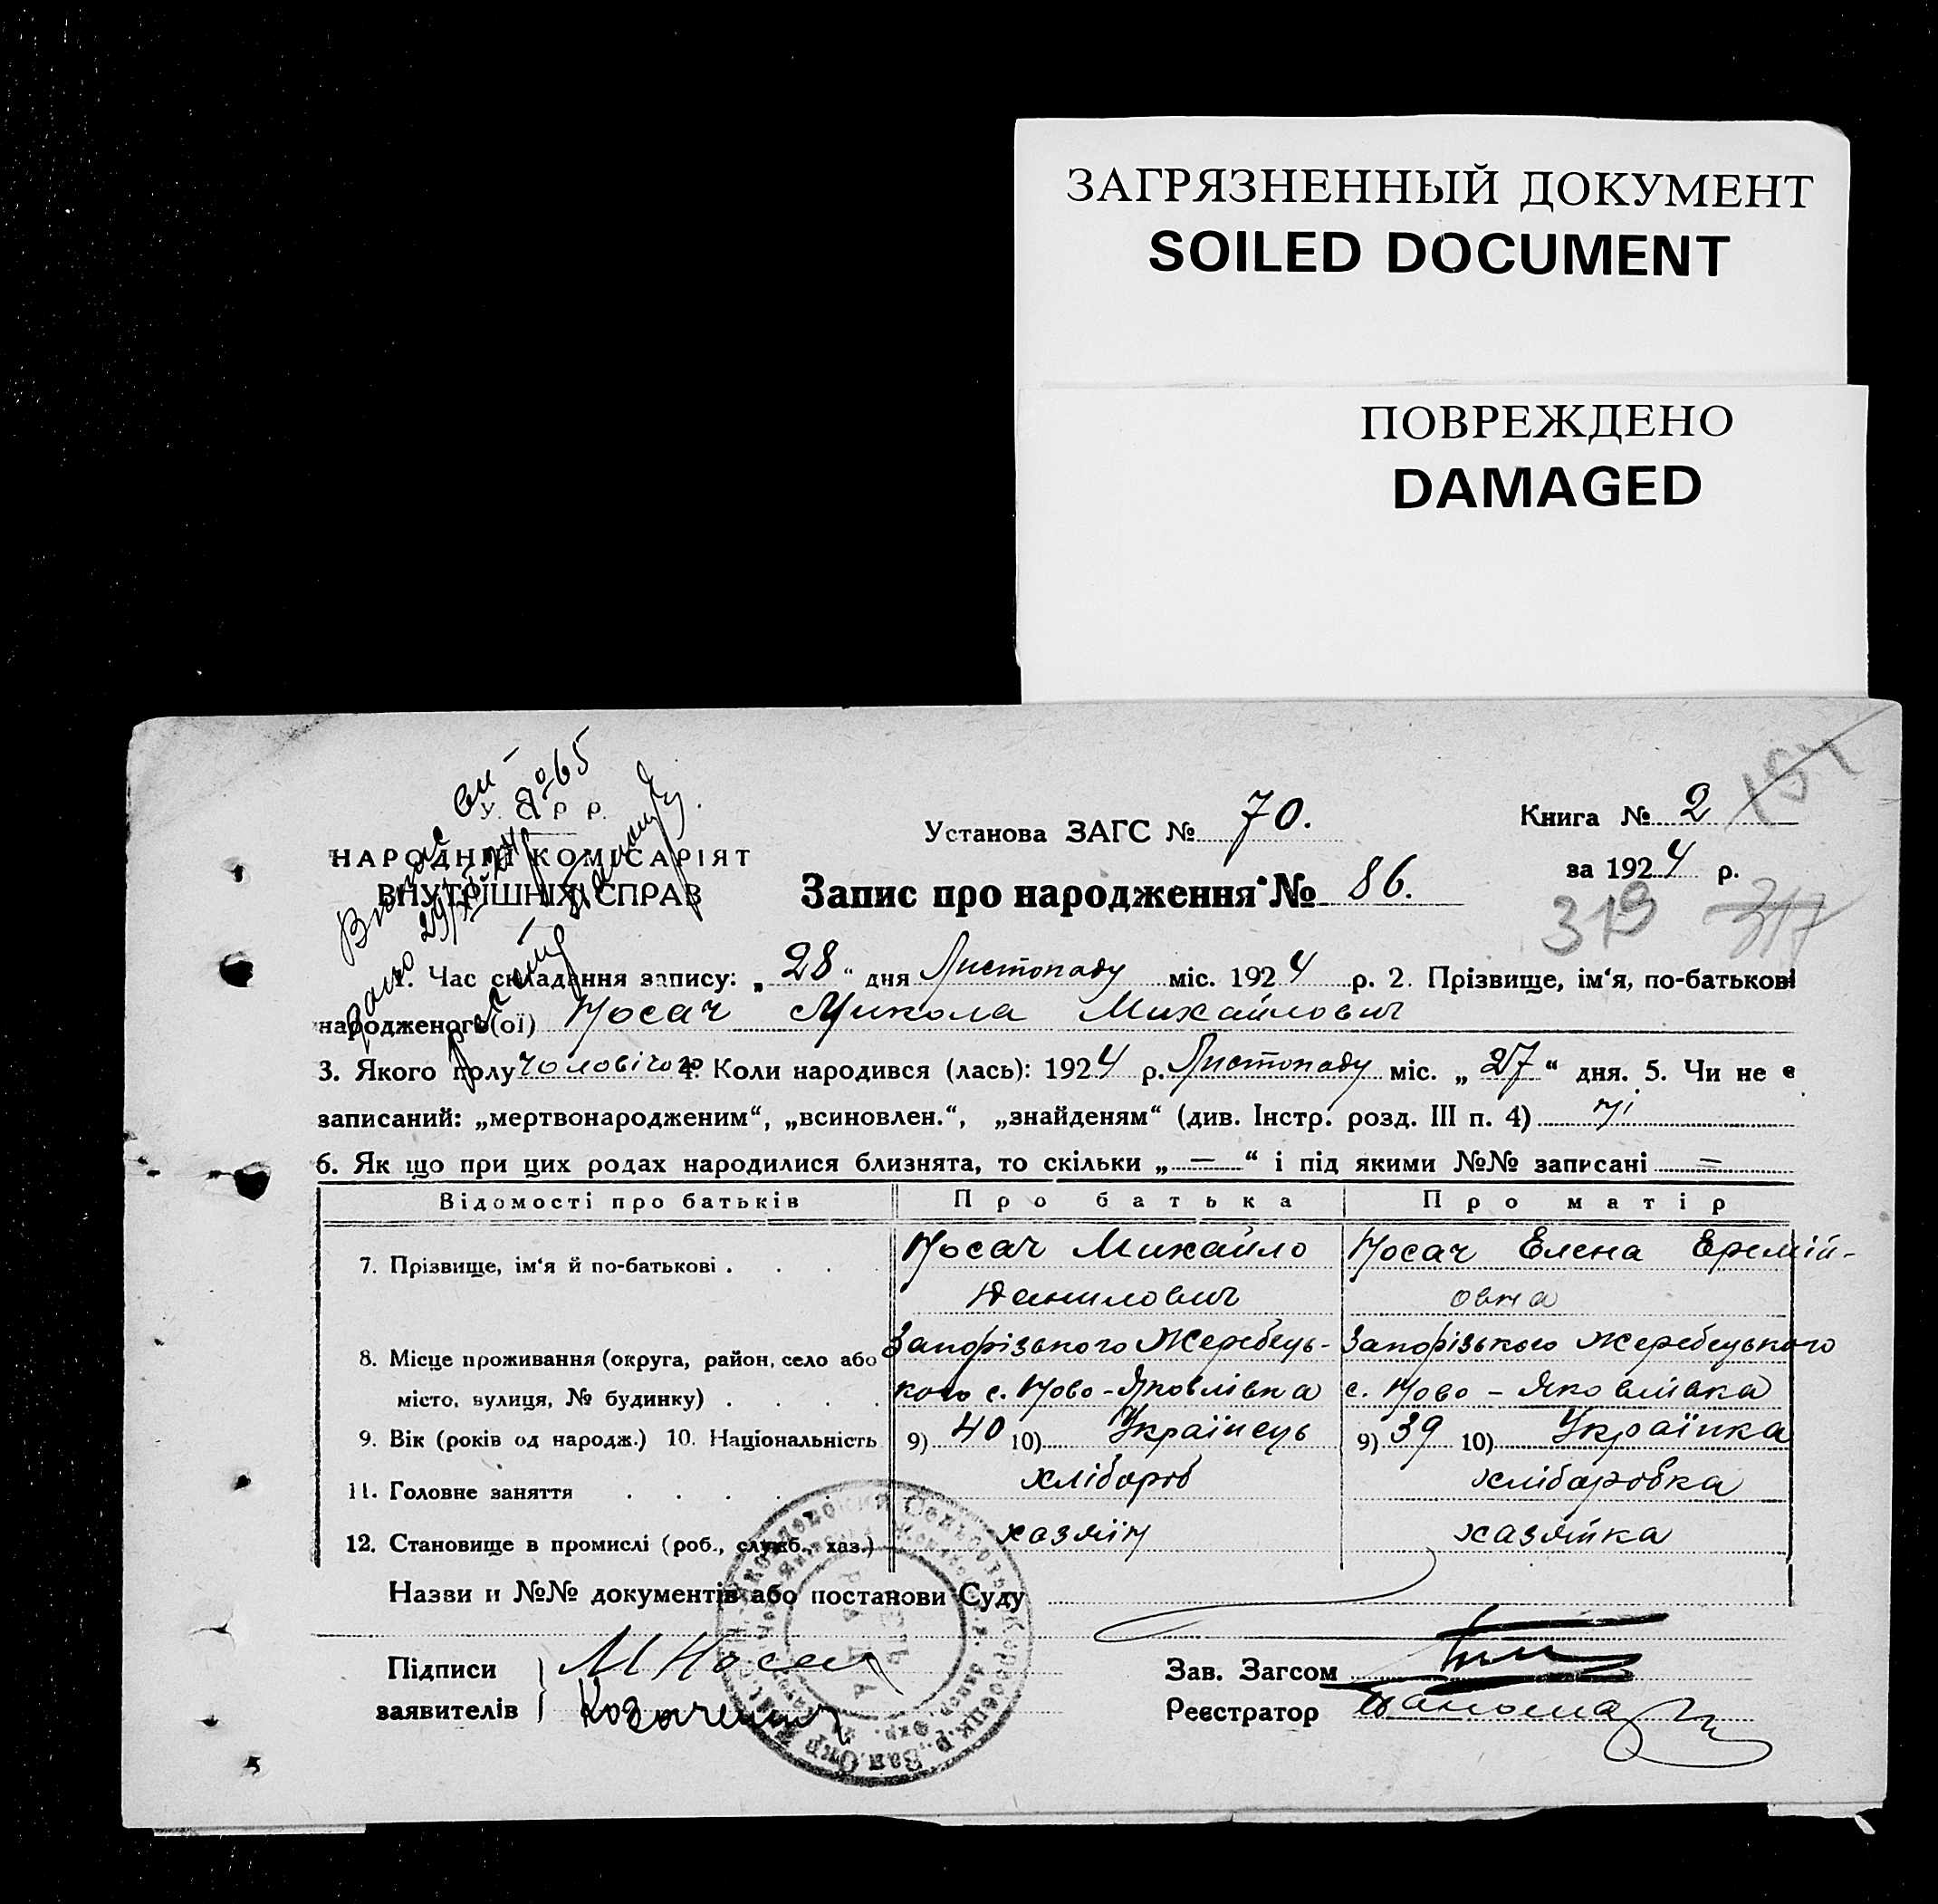 ЗАГРЯЗНЕННЫЙ ДОКУМЕНТ
SOILED DOCUMENT
ПОВРЕЖДЕНО
DAMAGED
У. С. Р Р.
НАРОДНІЙ КОМІСАРІЯТ
ВНУТРІШНІХ СПРАВ
Установа ЗАГС № 70.
Книга № 2
за 1924 р.
Запис про народження № 86.
319 317
1. Час складання запису: „ 28 “ дня Листопаду міс. 1924 р. 2. Прізвище, ім‘я, по-батькові
народженого(ої) Носач Микола Михайлович
3. Якого полу чоловічого 4. Коли народився (лась): 1924 р. Листопаду міс. „ 27 “ дня. 5. Чи не є
записаний: „мертвонародженим“, „всиновлен.“, „знайденям“ (див. Інстр. розд. III п. 4) ні
6. Як що при цих родах народилися близнята, то скільки „ — “ і під якими №№ записані —
Відомості про батьків Про батька Про матір
7. Прізвище, ім‘я й по-батькові . . . . Носач Михайло Носач Елена Еремій-
Данилович овна
8. Місце проживання (округа, район, село або Запорізького Жеребець- Запорізького Жеребецького
місто, вулиця, № будинку) . . . . кого с. Ново-Яковлівка с. Ново-Яковлівка
9. Вік (років од народж.) 10. Національність 9) 40 10) Українець 9) 39 10) Українка
11. Головне заняття . . . . . хлібороб хліборобка
12. Становище в промислі (роб., служб., хаз.) хазяїн хазяйка
Назви и №№ документів або постанови Суду
Підписи М Носач
заявителів
Зав. Загсом
Реєстратор